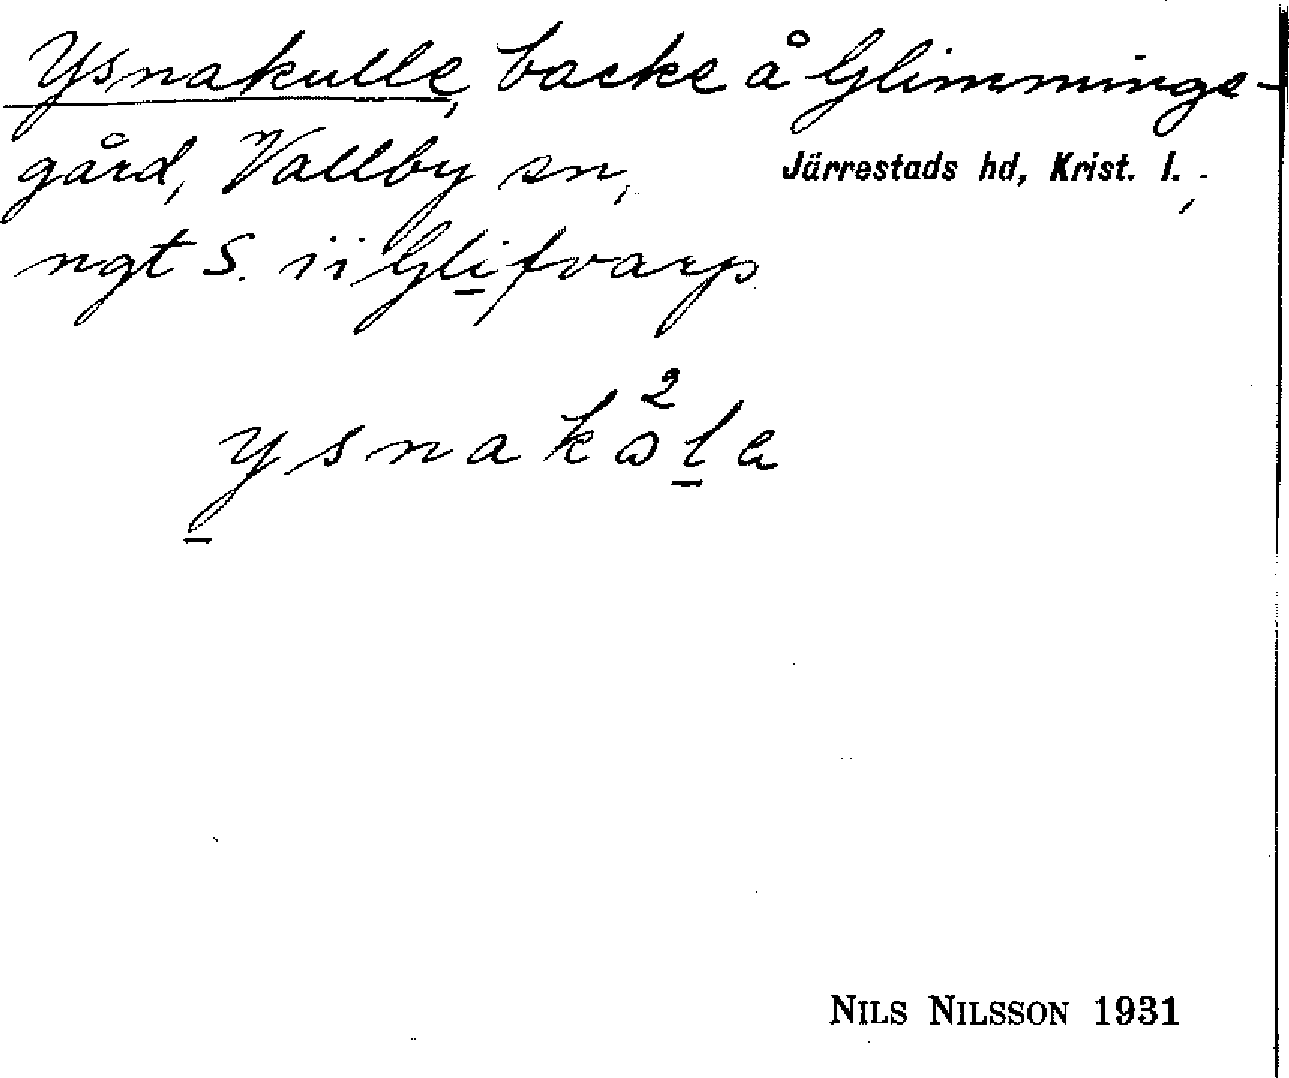 Ysnakulle, backe å Glimminge-
gård, Vallby sn, Järrestads hd, Krist. l.,
ngt S. ii Glifvarp
2
ysnakola
NILS NILSSON 1931